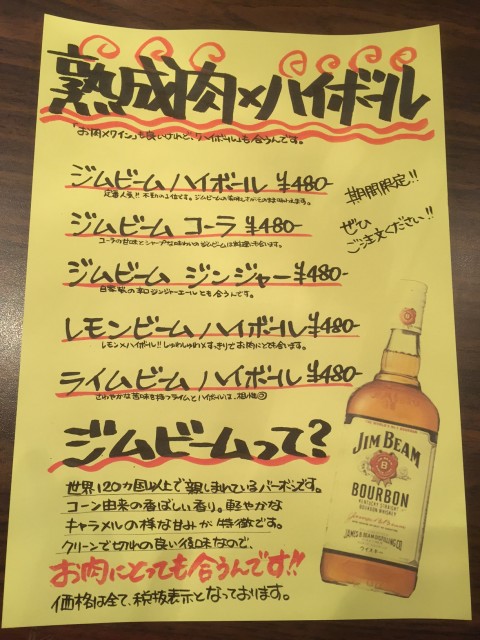 熟成肉×ハイボール
「お肉×ワイン」も良いけれど、「ハイボール」も合うんです。
ジムビーム ハイボール ¥480-
定番人気!! 不動の1位です。ジムビームの美味しさがそのまま味わえます。
期間限定!!
ぜひ
ご注文ください!!
ジムビーム コーラ ¥480-
コーラの甘味とシャープな味わいのジムビームは料理にも合います。
ジムビーム ジンジャー ¥480-
自家製の辛口ジンジャーエールとも合うんです。
レモンビーム ハイボール ¥480-
レモン×ハイボール!! しゅわしゅわ×すっきりでお肉にとても合います。
ライムビーム ハイボール ¥480-
さわやかな苦味を持つライムとハイボールは、相性◎
ジムビームって?
世界120カ国以上で親しまれているバーボンです。
コーン由来の香ばしい香り。軽やかな
キャラメルの様な甘みが特徴です。
クリーンで切れの良い後味なので、
お肉にとっても合うんです!!
価格は全て、税抜表示となっております。
JIM BEAM
BOURBON
KENTUCKY STRAIGHT
BOURBON WHISKEY
JAMES B. BEAM DISTILLING CO.
ウイスキー